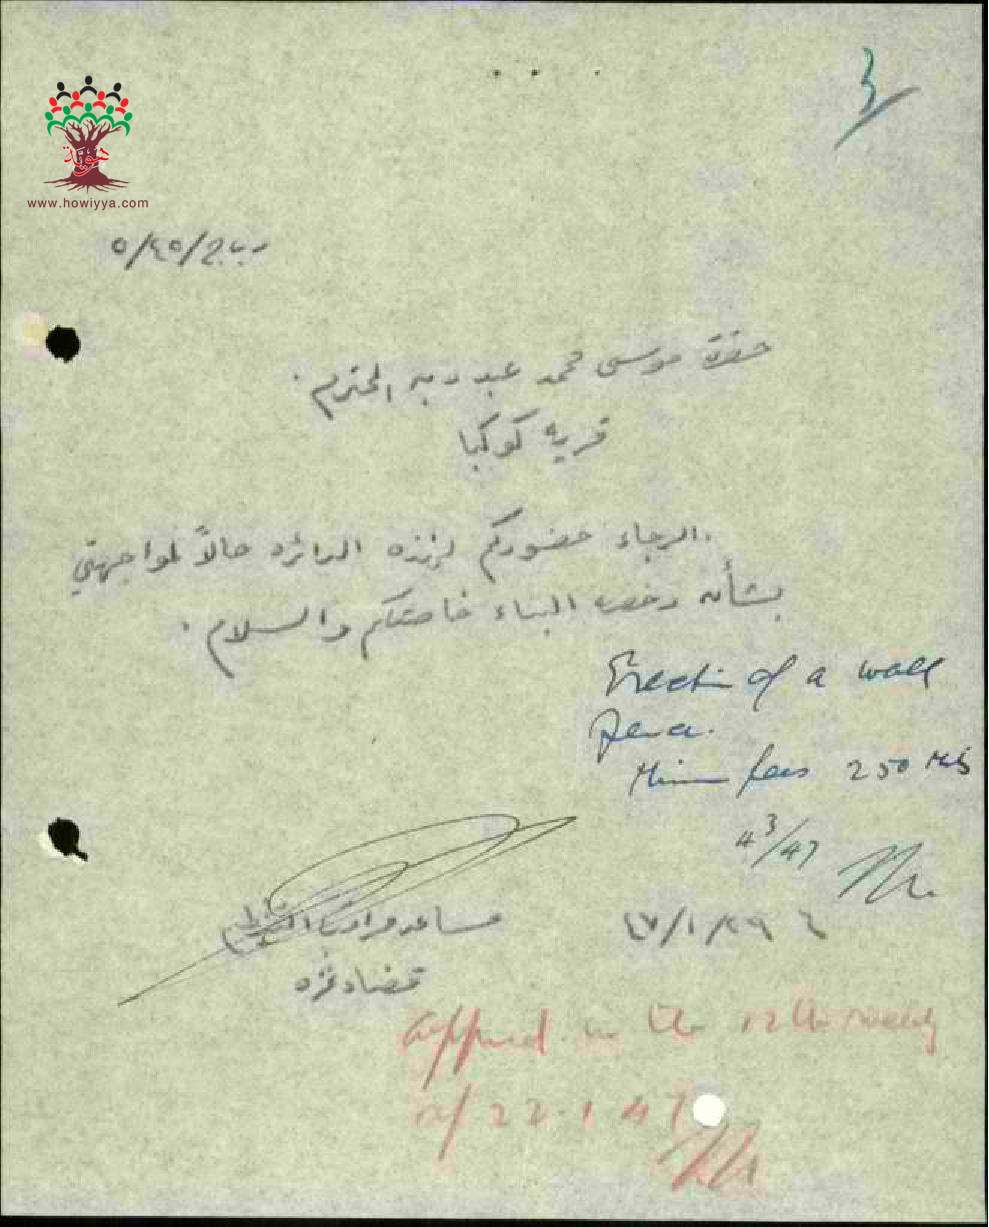 ٣
هوية
www.howiyya.com
ر ب ج/٤٥/٥
حضرة موسى محمد عبد ربه المحترم.
قرية كوكبا
الرجاء حضوركم لهذه الدائره حالاً لمواجهتي
بشأن رخصة البناء خاصتكم والسلام.
Erection of a wall
Minm fees 250 Mls
4/3/47
مساعد مراقب
٤٧/١/٢٩
قضاء غزه
Approved in the 12th meeting
of 22.1.47